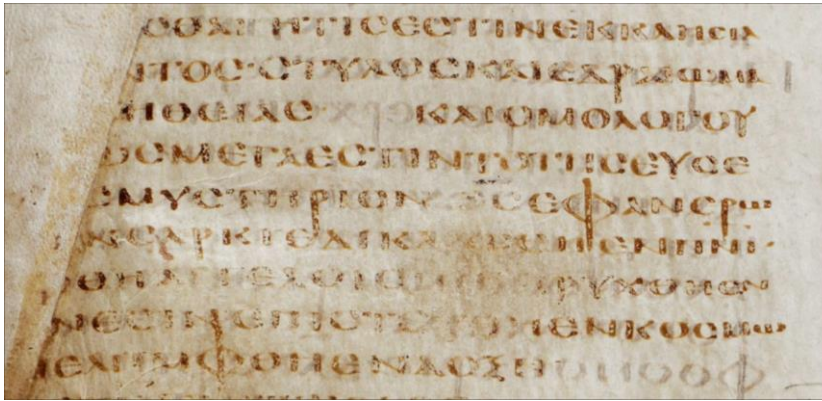 ϹΘΑΙ ΗΤΙϹ ΕϹΤΙΝ ΕΚΚΛΗϹΙΑ
ΝΤΟϹ· ϹΤΥΛΟϹ ΚΑΙ ΕΔΡΑΙΩΜΑ
ΗΘΕΙΑϹ· ΚΑΙ ΟΜΟΛΟΓΟΥ
ΩϹ ΜΕΓΑ ΕϹΤΙΝ ΤΟ ΤΗϹ ΕΥϹΕ
ΜΥϹΤΗΡΙΟΝ Θ̅Ϲ̅ ΕΦΑΝΕΡΩ
ΕΝ ϹΑΡΚΙ ΕΔΙΚΑΙΩΘΗ ΕΝ ΠΝΙ·
ΦΘΗ ΑΓΓΕΛΟΙϹ ΕΚΗΡΥΧΘΗ ΕΝ
ΝΕϹΙΝ ΕΠΙϹΤΕΥΘΗ ΕΝ ΚΟϹΜΩ
ΝΕΛΗΜΦΘΗ ΕΝ ΔΟΞΗ